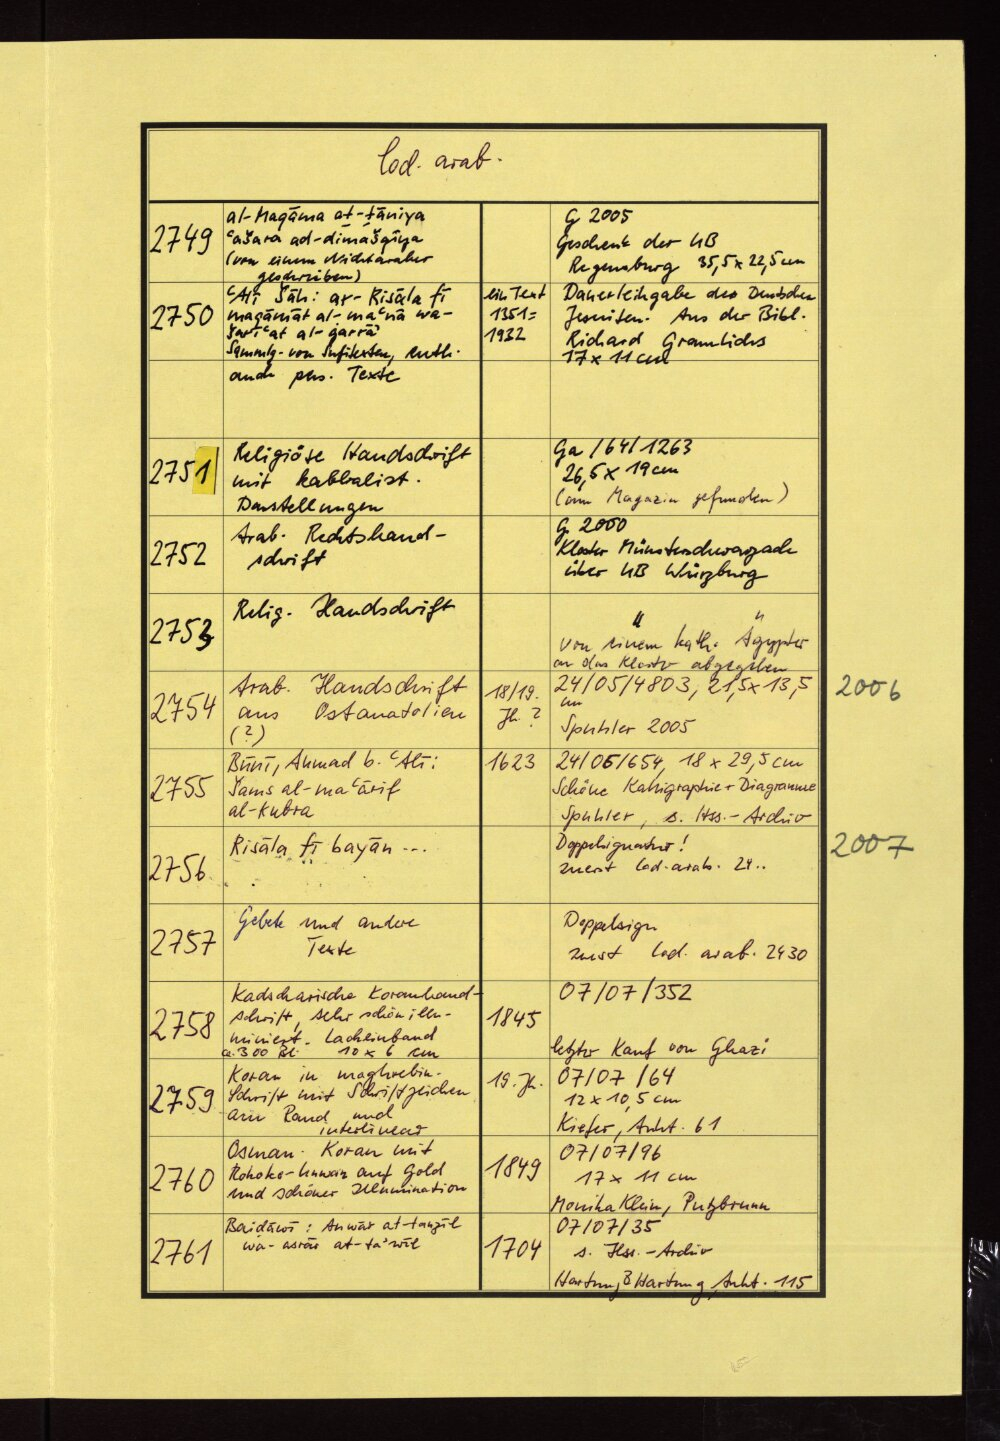 Cod. arab.
2749
al-Maqāma aṯ-ṯāniya
ʿašara ad-dimašqīya
(von einem Nichtaraber
geschrieben)
G 2005
Geschenk der UB
Regensburg 35,5 x 22,5 cm
2750
ʿAlī Šāh: ar-Risāla fī
maqāmāt al-maʿnā wa-
šarīʿat al-ġarrāʾ
Sammlg. von Sufitexten, enth.
auch pers. Texte
ein Text
1351=
1932
Dauerleihgabe des Deutschen
Jesuiten. Aus der Bibl.
Richard Gramlichs
17 x 11 cm
2751
Religiöse Handschrift
mit kabbalist.
Darstellungen
Ga /64/1263
26,5 x 19 cm
(im Magazin gefunden)
2752
Arab. Rechtshand-
schrift
G. 2000
Kloster Münsterschwarzach
über UB Würzburg
2753
Relig. Handschrift
" "
von einem kath. Ägypter
an das Kloster abgegeben
2754
Arab. Handschrift
aus Ostanatolien
(?)
18/19.
Jh. ?
24/05/4803, 21,5 x 13,5
cm
Spuhler 2005
2006
2755
Būnī, Aḥmad b. ʿAlī:
Šams al-maʿārif
al-kubra
1623
24/06/654, 18 x 29,5 cm
Schöne Kalligraphie + Diagramme
Spuhler, s. Hss.-Archiv
2756
Risāla fī bayān ...
Doppelsignatur!
zuerst Cod. arab. 24..
2007
2757
Gebete und andere
Texte
Doppelsign
zuerst Cod. arab. 2430
2758
Kadscharische Koranhand-
schrift, sehr schön illu-
miniert. Lackeinband
ca. 300 Bl. 10 x 6 cm
1845
07/07/352
letzter Kauf von Ghazi
2759
Koran in maghrebin.
Schrift mit Schriftzeichen
am Rand und
interlinear
19. Jh.
07/07 /64
12 x 10,5 cm
Kiefer, Aukt. 61
2760
Osman. Koran mit
Rokoko-Unwan auf Gold
und schöner Illumination
1849
07/07/96
17 x 11 cm
Monika Klein, Putzbrunn
2761
Baiḍāwī: Anwār at-tanzīl
wa-asrār at-taʾwīl
1704
07/07/35
s. Hss.-Archiv
Hartung & Hartung, Aukt. 115